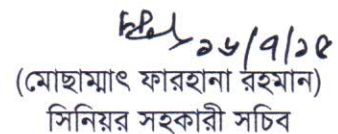 ১৬/৭/১৫
(মোছাম্মাৎ ফারহানা রহমান)
সিনিয়র সহকারী সচিব